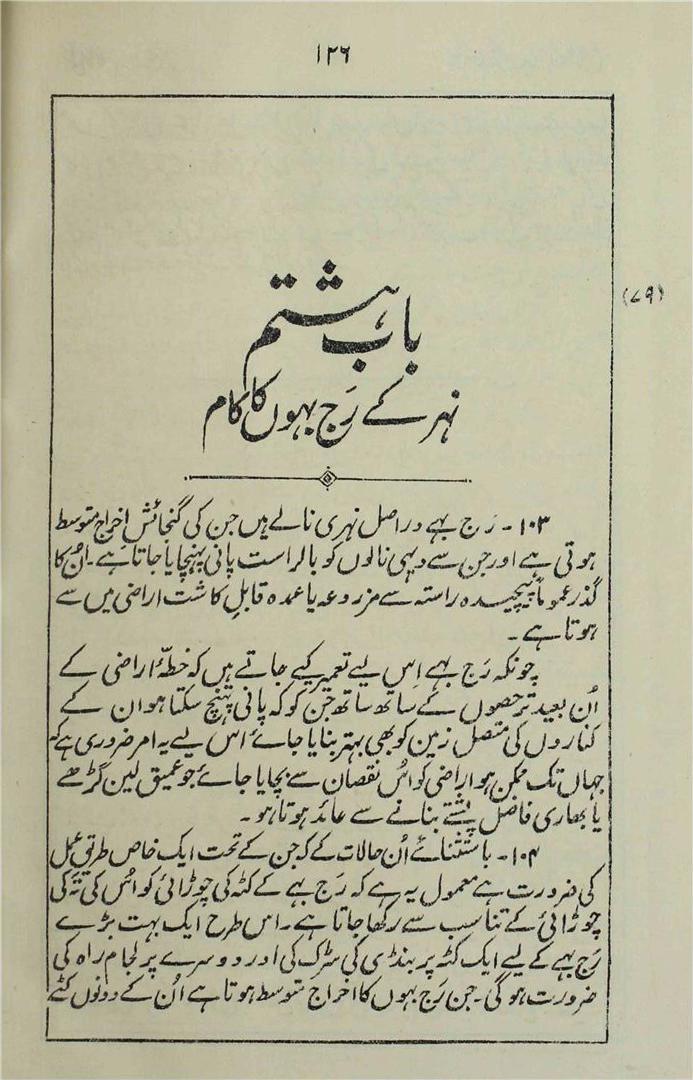 ۱۲۶
باب ہشتم
(۷۹)
نہر کے رَج بہوں کا کام
۱۰۳ - رَج بہے دراصل نہری نالے ہیں جن کی گنجائش اِخراج متوسط
ہوتی ہے اور جن سے دیہی نالوں کو بالراست پانی پہنچایا جاتا ہے۔ اُن کا
گذر عموماً پیچیدہ راستہ سے مزروعہ یا عمدہ قابلِ کاشت اراضی میں سے
ہوتا ہے۔
چونکہ رَج بہے اِس لیے تعمیر کیے جاتے ہیں کہ خطۂ اراضی کے
اُن بعید تر حصوں کے ساتھ ساتھ جن کو کہ پانی پہنچ سکتا ہو ان کے
کناروں کی متصل زمین کو بھی بہتر بنایا جائے اس لیے یہ امر ضروری ہے کہ
جہاں تک ممکن ہو اراضی کو اُس نقصان سے بچایا جائے جو عمیق لین گڑھے
یا بھاری فاصل پشتے بنانے سے عائد ہوتا ہو۔
۱۰۴ - باستثنائے اُن حالات کے کہ جن کے تحت ایک خاص طریق عمل
کی ضرورت ہے معمول یہ ہے کہ رَج بہے کے کٹہ کی چوڑائی کو اُس کی تہ کی
چوڑائی کے تناسب سے رکھا جاتا ہے۔ اس طرح ایک بہت بڑے
رَج بہے کے لیے ایک کٹہ پر بنڈی کی سڑک کی اور دوسرے پر لجام راہ کی
ضرورت ہوگی۔ جن رَج بہوں کا اخراج متوسط ہوتا ہے اُن کے دونوں کٹے